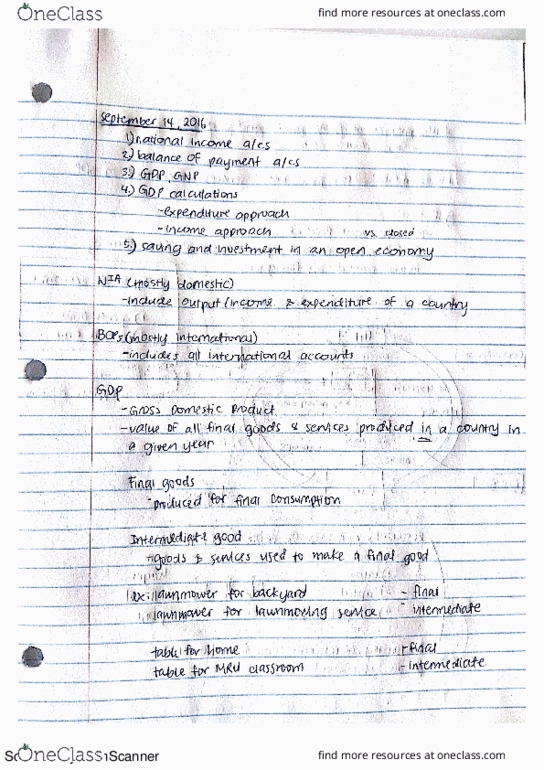 OneClass find more resources at oneclass.com
September 14, 2016
1) national income a/cs
2) balance of payment a/cs
3) GDP, GNP
4) GDP calculations
-expenditure approach
-income approach vs. closed
5) saving and investment in an open economy
NIA (mostly domestic)
-include output/income & expenditure of a country
BOPs (mostly international)
-includes all international accounts
GDP
-Gross Domestic Product
-value of all final goods & services produced in a country in
a given year
Final goods
-produced for final consumption
Intermediate good
-goods & services used to make a final good
ex: lawnmower for backyard - final
lawnmower for lawnmowing service - intermediate
table for home - final
table for MRU classroom - intermediate
OneClass Scanner find more resources at oneclass.com